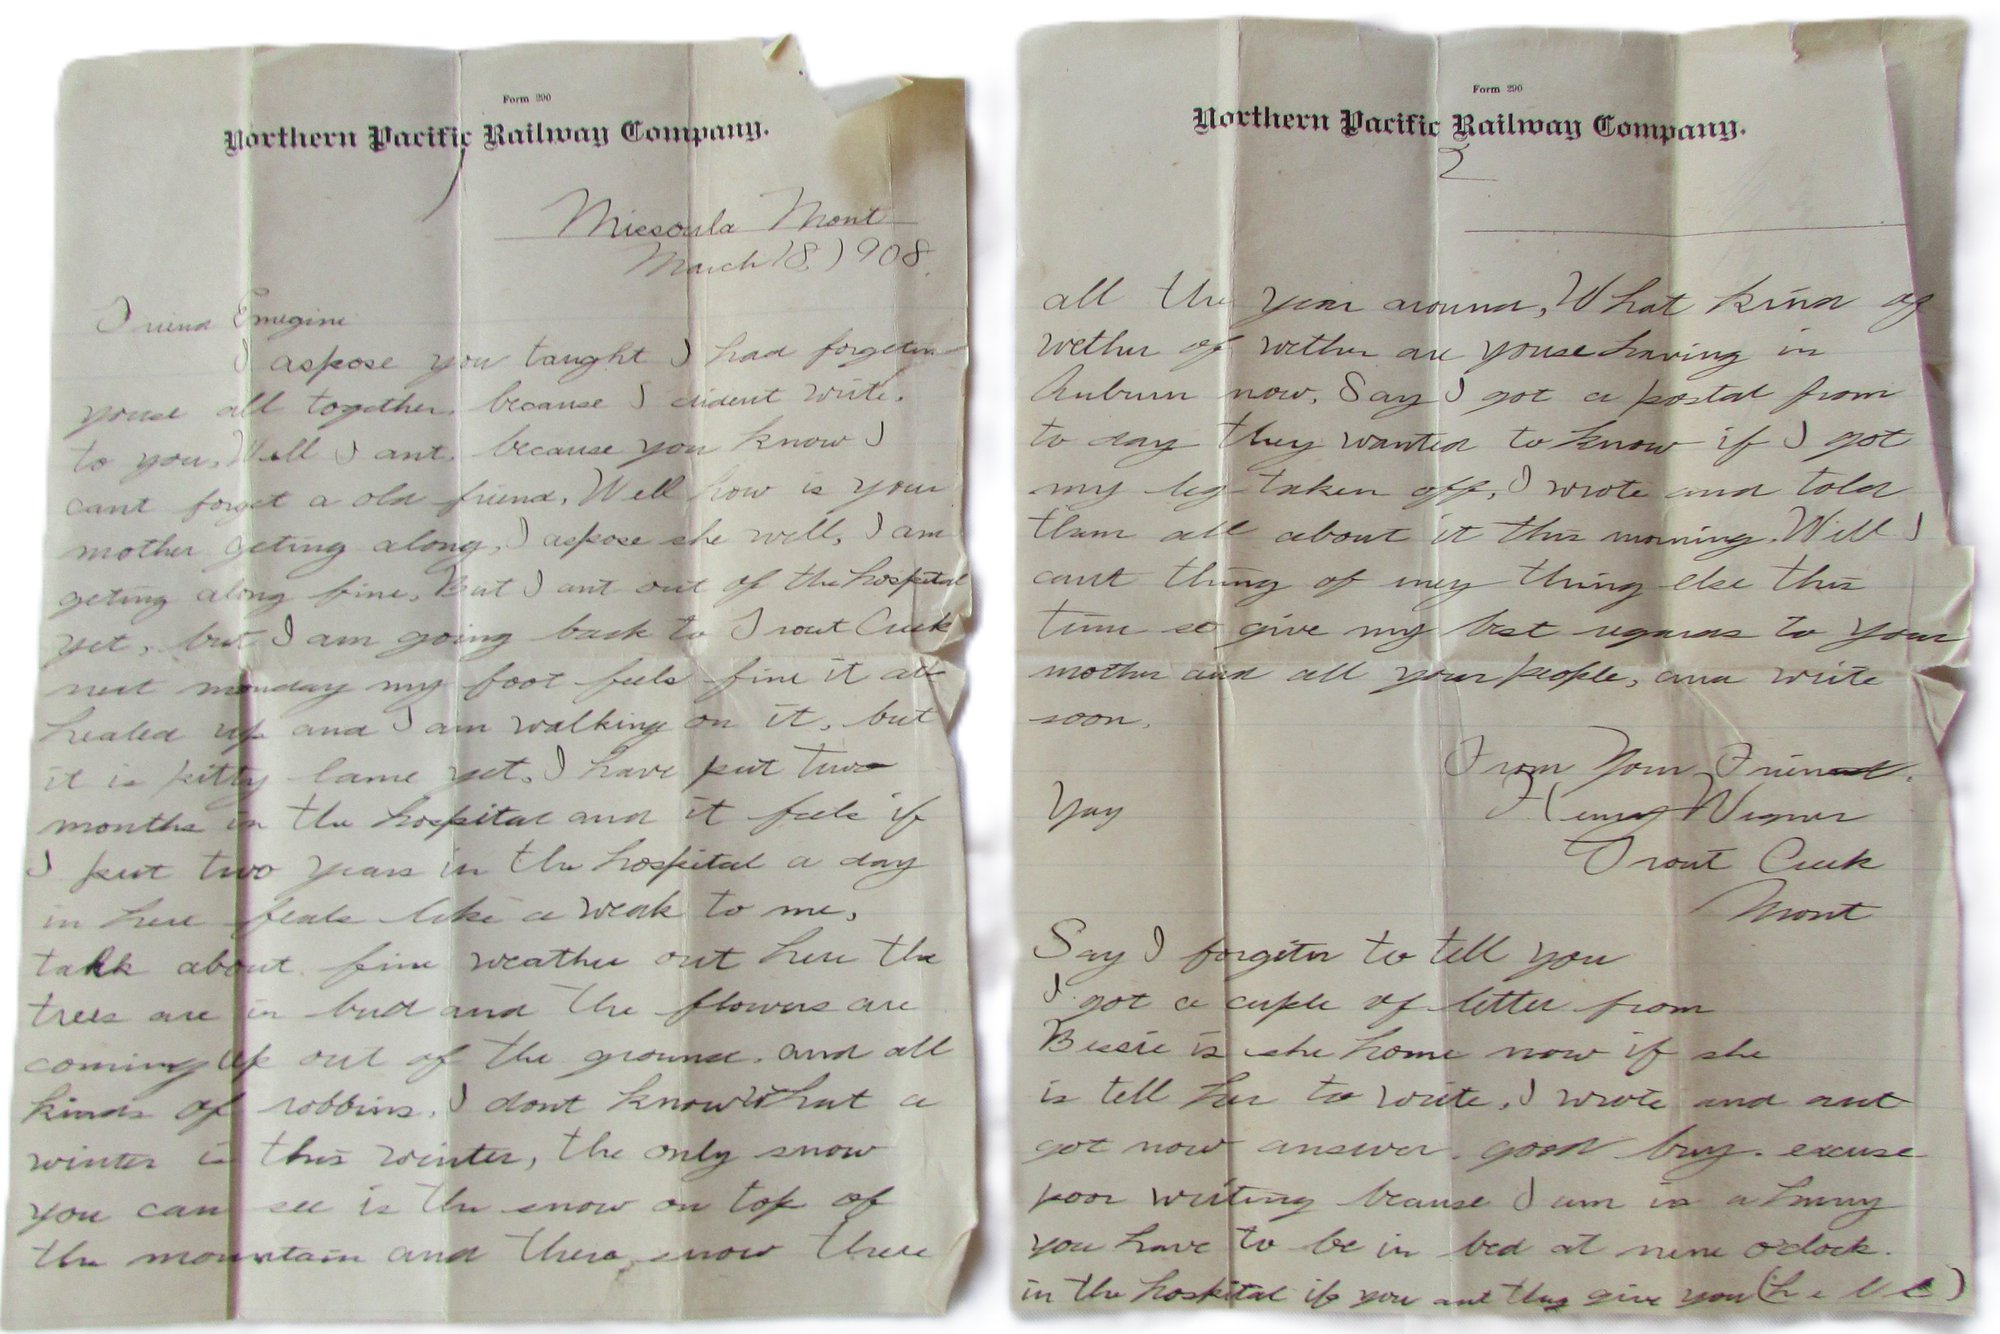 Form 290
Northern Pacific Railway Company.
Missoula Mont
March 18, 1908.
Friend Emegine
I aspose you taught I had forgeten
youse all together, because I dident write.
to you, Well I ant. because you know I
cant forget a old friend, Well how is your
mother geting along, I aspose she well, I am
geting along fine, But I ant out of the hospital
yet, but I am going back to Trout Creek
next monday my foot feels fine it all
healed up and I am walking on it, but
it is pitty lame yet, I have put two
months in the hospital and it feels if
I put two years in the hospital a day
in here feals like a weak to me,
talk about fine weather out here the
trees are in bud and the flowers are
coming up out of the ground, and all
kinds of robbins, I dont know What a
winter is this winter, the only snow
you can see is the snow on top of
the mountain and there snow there
Form 290
Northern Pacific Railway Company.
2
all the year around, What kind of
wether of wether are youse having in
Auburn now, Say I got a postal from
to day they wanted to know if I got
my leg taken off, I wrote and told
tham all about it this morning. Well I
cant thing of iney thing else this
time so give my best regards to your
mother and all your people, and write
soon.
From Your Friend.
Yay
Henry Wegner
Trout Creek
Mont
Say I forgeten to tell you
I got a cuple of letter from
Bessie is she home now if she
is tell her to write, I wrote and ant
got now answer. good buy. excuse
poor writing because I am in a hurry
you have to be in bed at nine o'clock.
in the hospital if you ant they give you (hell)